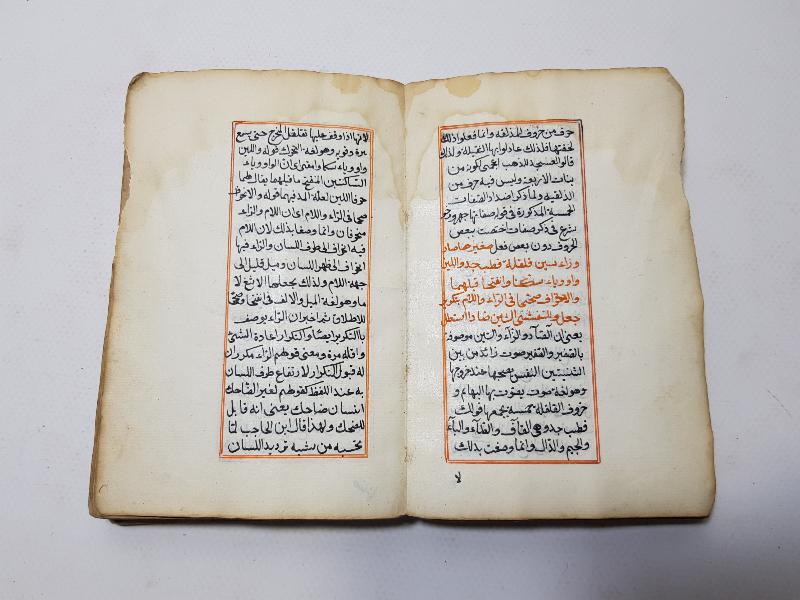 حرف من حروف المذلقة وانما فعلوا ذلك
لخفتها فلذلك عادلوا بها الثقيلة ولذلك
قالوا العسجد للذهب اعجمي لكونه من
بنات الاربعة وليس فيه حرف من
الذلقية ولما ذكر اضداد الصفات
الخمسة المذكورة في قوله صفاتها جهر ورخو
شرع في ذكر صفات اختصت ببعض
الحروف دون بعض فقال صفيرها صاد
وزاء سين قلقلة قطب جد واللين
واو وياء سكنا وانفتحا قبلهما
والانحراف صححا في الراء واللام وبتكرير
جعل وللتفشي الشين ضادا استطل
يعني ان الصاد والزاء والسين موصوفة
بالصفير والصفير صوت زائد من بين
الثنيتين النفس يصحبها عند خروجها
وهو لغة صوت يصوت بها البهائم و
حروف القلقلة خمسة يجمعها قولك
قطب جد وهي القاف والطاء والباء
والجيم والدال وانما وصفت بذلك
لا
لانها اذا وقف عليها تقلقل المخرج حتى يسمع
نبرة قوية وهو لغة التحرك قوله واللين
واو وياء سكنا وانفتحا اي ان الواو والياء
الساكنين المنفتح ما قبلهما يقال لهما
حرفا اللين لقلة المد فيهما قوله والانحراف
صححا في الراء واللام اي ان اللام والراء
منحرفان وانما وصفا بذلك لان اللام
فيه انحراف الى طرف اللسان والراء فيها
انحراف الى ظهر اللسان وميل قليل الى
جهة اللام ولذلك يجعلها الالثغ لا
ما وهو لغة الميل والالف في انفتحا وصححا
للاطلاق ثم اخبر ان الراء يوصف
بالتكرير ايضا والتكرار اعادة الشئ
واقله مرة ومعنى قولهم الراء مكرر ان
له قبول التكرار لارتفاع طرف اللسان
به عند اللفظ كقولهم لغير الضاحك
انسان ضاحك يعني انه قابل
للضحك ولهذا قال ابن الحاجب لما
تحسه من شبه ترديد اللسان